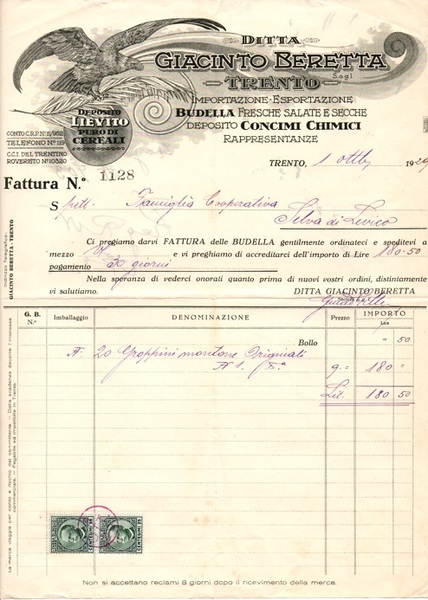 DITTA
GIACINTO BERETTA
S.a g.l.
TRENTO
IMPORTAZIONE-ESPORTAZIONE
BUDELLA FRESCHE SALATE E SECCHE
DEPOSITO CONCIMI CHIMICI
RAPPRESENTANZE
DEPOSITO
LIEVITO
PURO DI
CEREALI
CONTO C.R.P. N° 11/962
TELEFONO N° 119
C.C.I. DEL TRENTINO
ROVERETO N° 10320
TRENTO, 1 Ottb. 1929
Fattura N.° 1128
Spett. Famiglia Cooperativa
Selva di Levico
Ci pregiamo darvi FATTURA delle BUDELLA gentilmente ordinateci e speditevi a
mezzo e vi preghiamo di accreditarci dell'importo di Lire 180.50
pagamento 30 giorni
Nella speranza di vederci onorati quanto prima di nuovi vostri ordini, distintamente
vi salutiamo. DITTA GIACINTO BERETTA
GIACINTO BERETTA - TRENTO
G. B. N.° Imballaggio DENOMINAZIONE Prezzo IMPORTO
Lire
Bollo " 50
20 Groppini montone Originali
N 1. 9.- 180 "
Lit. 180 50
La merce viaggia per conto e rischio del committente. - Dalla scadenza decorre l'interesse
commerciale. - Pagabile ed impostabile in Trento.
Non si accettano reclami 8 giorni dopo il ricevimento della merce.